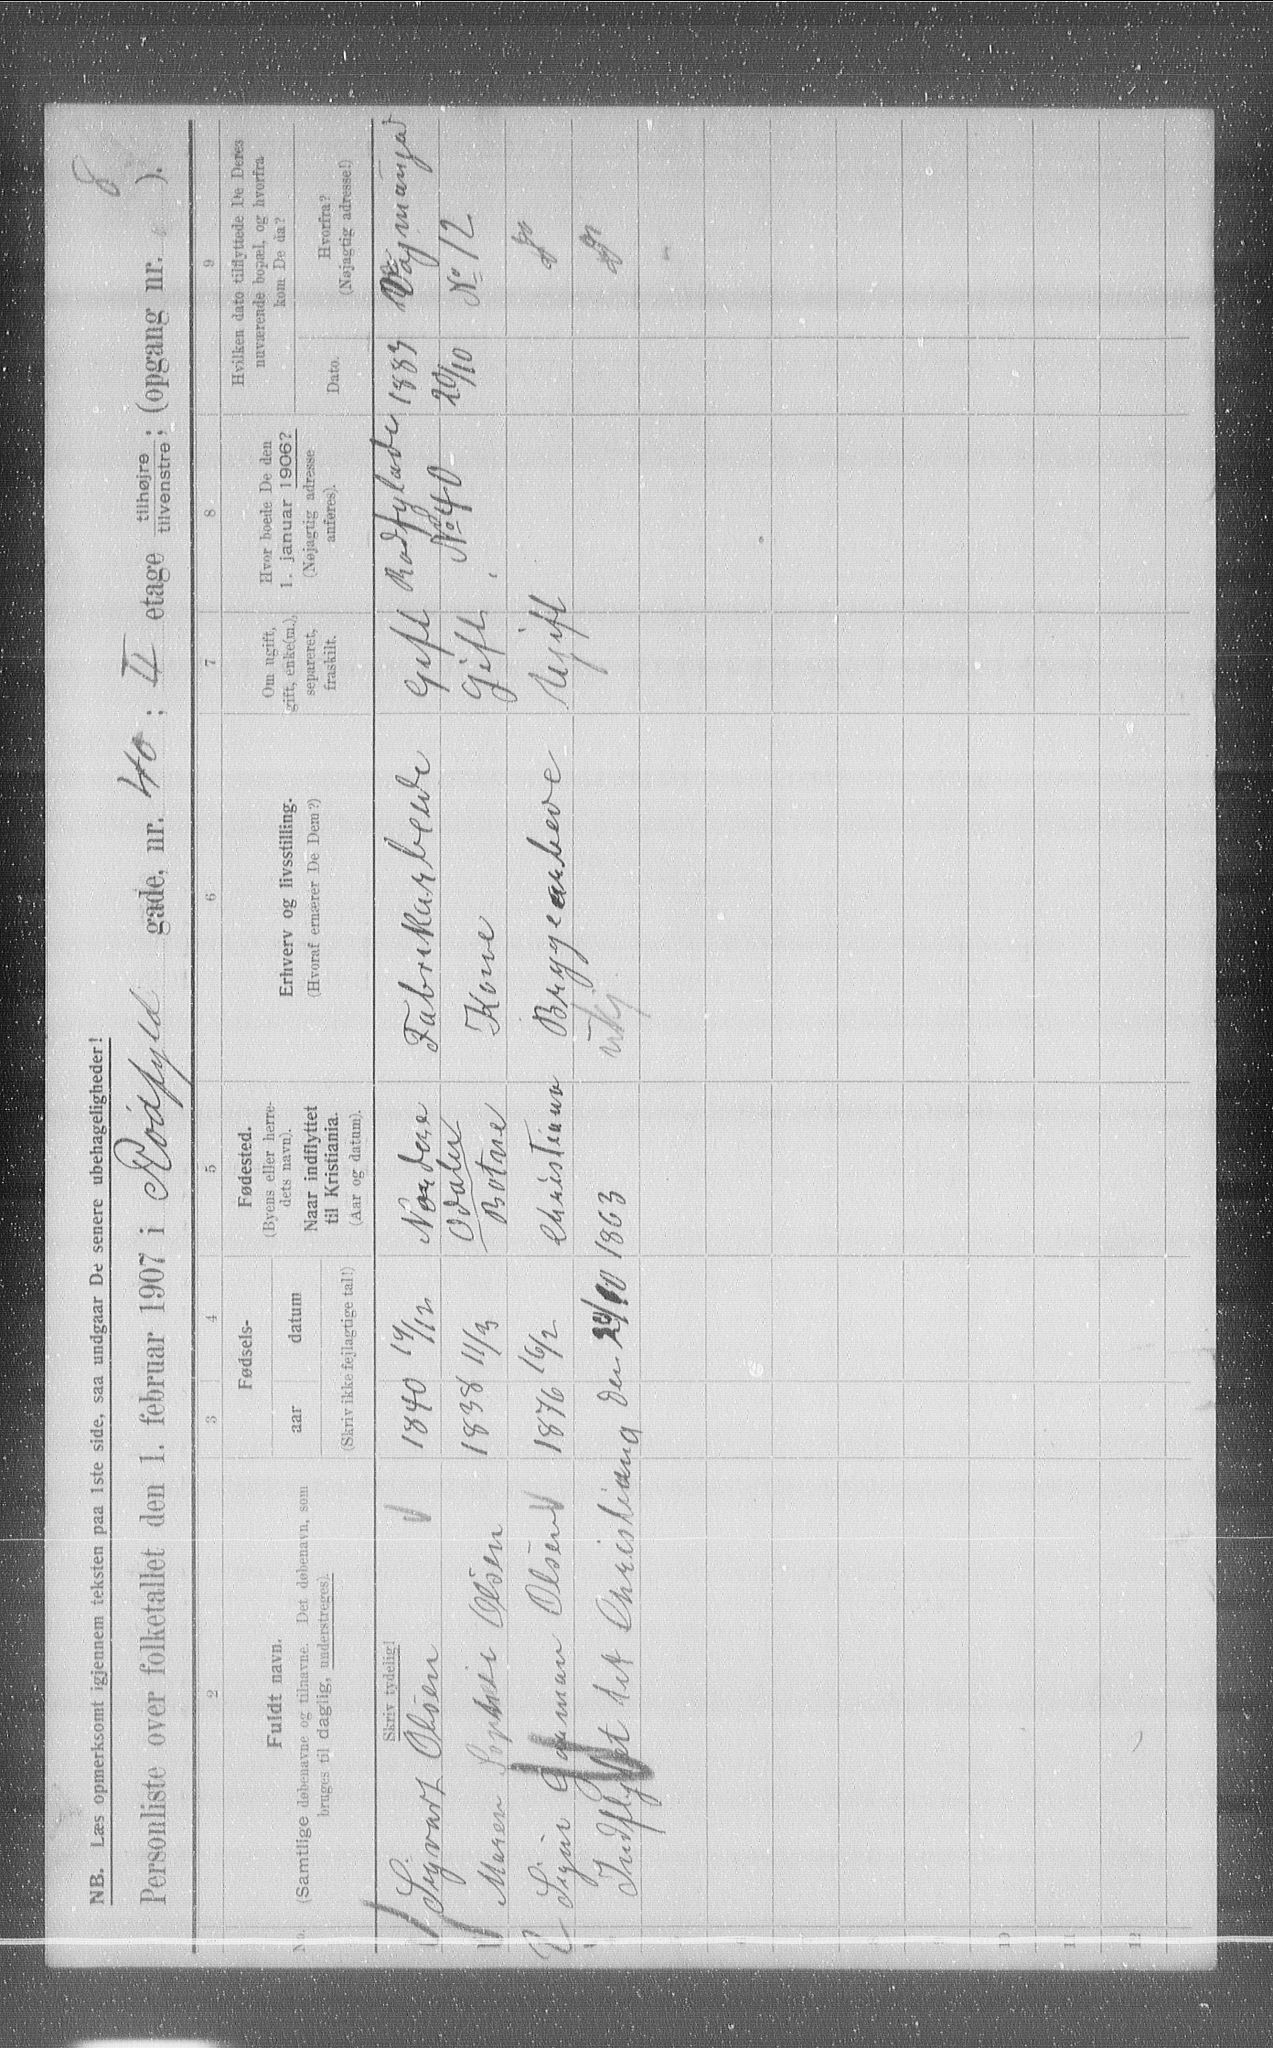 8
NB. Læs opmerksomt igjennem teksten paa 1ste side, saa undgaar De senere ubehageligheder!
Personliste over folketallet den 1. februar 1907 i Rødfyld gade, nr. 40; II etage tilhøjre tilvenstre; (opgang nr. ).
2 3 4 5 6 7 8 9
No.
Fuldt navn.
(Samtlige døbenavne og tilnavne. Det døbenavn, som
bruges til daglig, understreges).
Fødsels-
aar datum
(Skriv ikke fejlagtige tal!)
Fødested.
(Byens eller herre-
dets navn).
Naar indflyttet
til Kristiania.
(Aar og datum).
Erhverv og livsstilling.
(Hvoraf ernærer De Dem?)
Om ugift,
gift, enke(m.),
separeret,
fraskilt.
Hvor boede De den
1. januar 1906?
(Nøjagtig adresse
anføres).
Hvilken dato tilflyttede De Deres
nuværende bopæl, og hvorfra
kom De da?
Dato.
Hvorfra?
(Nøjagtig adresse!)
Skriv tydelig!
Sigvart Olsen 1840 19/12 Nordere Fabrikarbeide Gift 1883
Odalen No 40 20/10 No 12
Maren Sophie Olsen 1838 11/3 Botne Kone Gift
Olsen 1876 16/2 Christiania Ugift
Indflyttet det Christiania den 1863
10
11
12